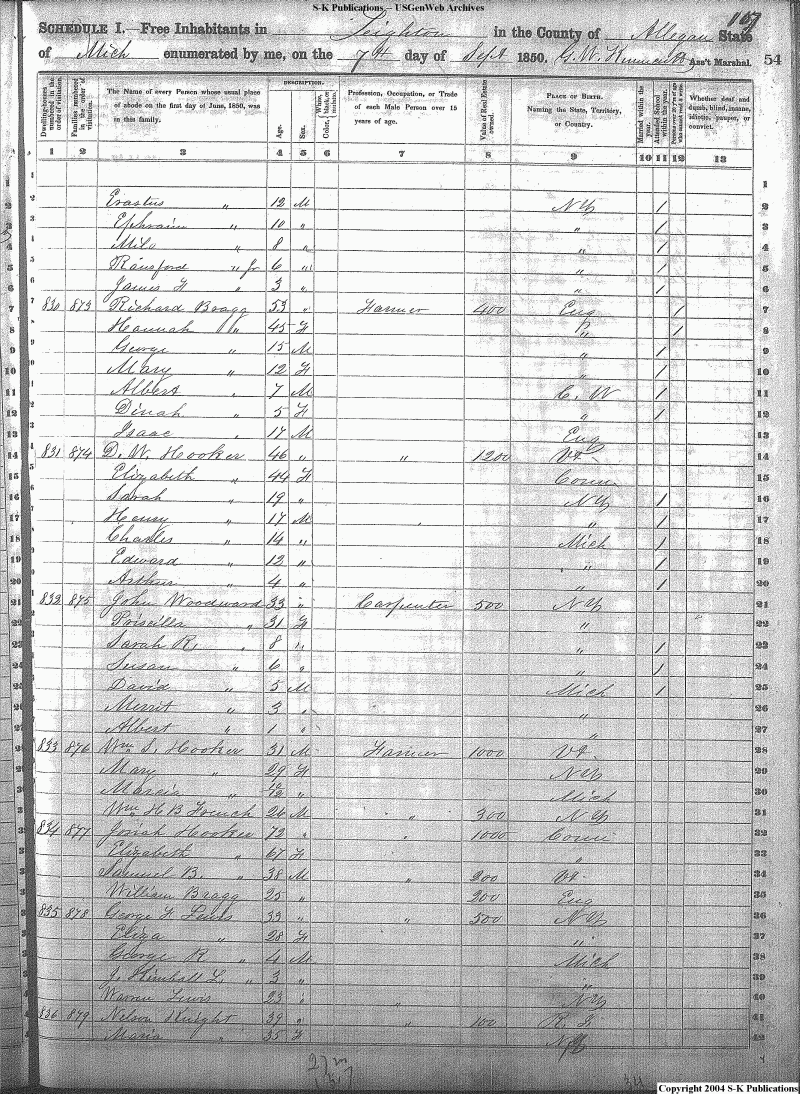 S-K Publications – USGenWeb Archives
167
SCHEDULE I.—Free Inhabitants in Leighton in the County of Allegan State
of Mich enumerated by me, on the 7th day of Sept 1850. G. W. Ass't Marshal. 54
Dwelling-houses numbered in the order of visitation. Families numbered in the order of visitation. The Name of every Person whose usual place of abode on the first day of June, 1850, was in this family. DESCRIPTION. Age. Sex. Color, White, black, or mulatto. Profession, Occupation, or Trade of each Male Person over 15 years of age. Value of Real Estate owned. PLACE OF BIRTH. Naming the State, Territory, or Country. Married within the year. Attended School within the year. Persons over 20 y'rs of age who cannot read & write. Whether deaf and dumb, blind, insane, idiotic, pauper, or convict.
1 2 3 4 5 6 7 8 9 10 11 12 13
1 1
2 Erastus " 12 M NY 1 2
3 Ephraim " 10 " " 1 3
4 Milo " 8 " " 1 4
5 Ransford " Jr 6 " " 1 5
6 James F " 3 " " 1 6
7 830 873 Richard Bragg 53 " Farmer 400 Eng 1 7
8 Hannah " 45 F " 1 8
9 George " 15 M " 1 9
10 Mary " 12 F " 1 10
11 Albert " 7 M C. W 1 11
12 Dinah " 5 F " 1 12
13 Isaac " 17 M Eng 13
14 831 874 D. W. Hooker 46 " " 1200 Vt 14
15 Elizabeth " 44 F Conn 15
16 Sarah " 19 " NY 1 16
17 Henry " 17 M " " 1 17
18 Charles " 14 " Mich 1 18
19 Edward " 12 " " 1 19
20 Arthur " 4 " " 1 20
21 832 875 John Woodward 33 " Carpenter 500 NY 21
22 Priscilla " 31 F " 22
23 Sarah R. " 8 " " 1 23
24 Susan " 6 " " 1 24
25 David " 5 M Mich 1 25
26 Merrit " 3 " " 26
27 Albert " 1 " " 27
28 833 876 Wm S. Hooker 31 M Farmer 1000 Vt. 28
29 Mary " 29 F NY 29
30 Marcia " Mich 30
31 Wm H B French 26 M " 300 NY 31
32 834 877 Josiah Hooker 72 " " 1000 Conn 32
33 Elizabeth " 67 F " 33
34 Samuel B. " 38 M " 200 Vt 34
35 William Bragg 25 " 200 Eng 35
36 835 878 George F Lewis 33 " " 500 NY 36
37 Eliza " 28 F " 37
38 George R " 4 M Mich 38
39 J. Kimball L. " 3 " " 39
40 Warren Lewis 23 " " NY 40
41 836 879 Nelson Knight 39 " " 100 R. I. 41
42 Maria " 35 F NY 42
Copyright 2004 S-K Publications